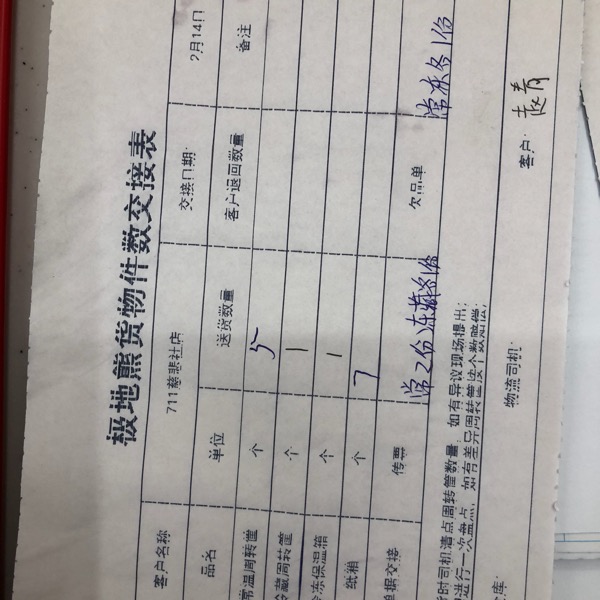 极地熊货物件数交接表
客户名称 711慈悲社店 交接日期: 2月14日
品名 单位 送货数量 客户退回数量 备注
常温周转筐 个 5
冷藏周转筐 个 1
冷冻保温箱 个 1
纸箱 个 7
单据交接 传票 常2份冻藏各1份 欠品单 常冻各1份
时司机清点周转筐数量,如有异议现场提出;
进行一次盘点,如有差异周转筐按个数赔偿;
仓库: 物流司机: 客户: